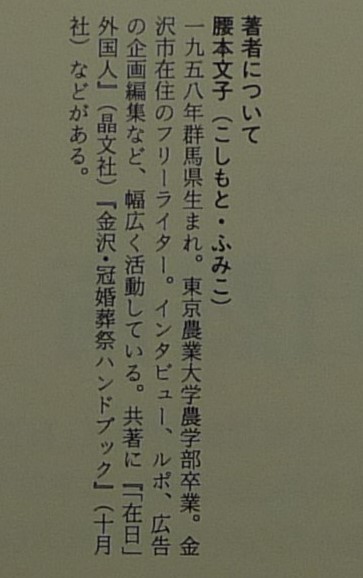 著者について
腰本文子（こしもと・ふみこ）
一九五八年群馬県生まれ。東京農業大学農学部卒業。金
沢市在住のフリーライター。インタビュー、ルポ、広告
の企画編集など、幅広く活動している。共著に『「在日」
外国人』（晶文社）『金沢・冠婚葬祭ハンドブック』（十月
社）などがある。